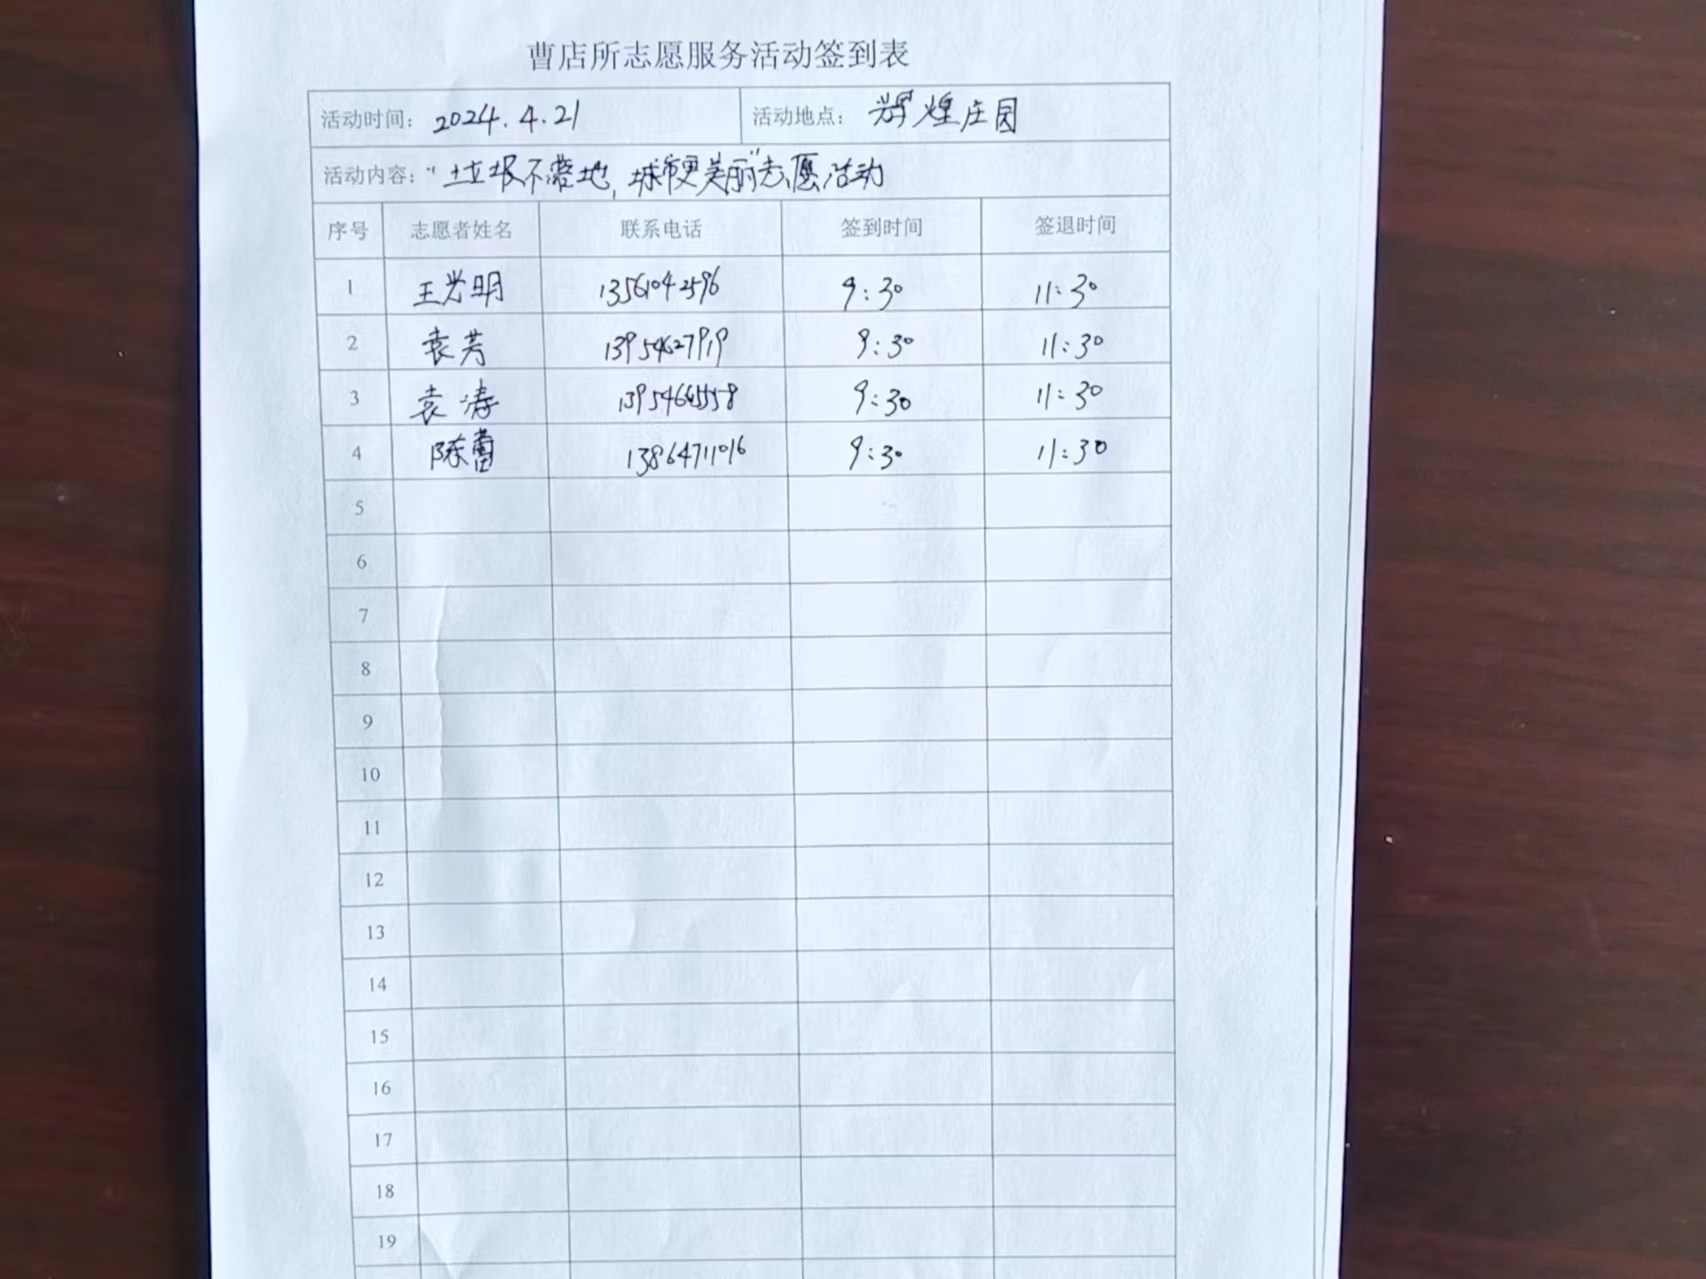 曹店所志愿服务活动签到表
活动时间: 2024.4.21 活动地点: 辉煌庄园
活动内容: "垃圾不落地,城市更美丽"志愿活动
序号 志愿者姓名 联系电话 签到时间 签退时间
1 王光明 13561042596 9:30 11:30
2 袁芳 13954627919 9:30 11:30
3 袁涛 9:30 11:30
4 陈蕾 13864711016 9:30 11:30
5
6
7
8
9
10
11
12
13
14
15
16
17
18
19